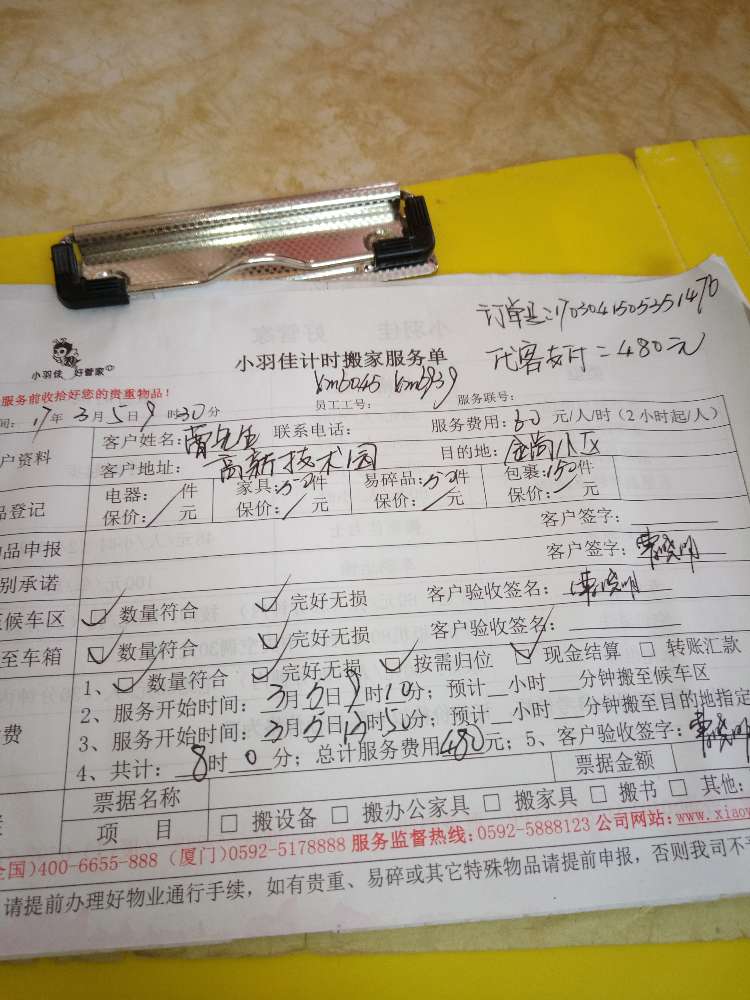 订单号:1703041505351476
代客支付=480元
小羽佳 好管家
小羽佳计时搬家服务单
服务前收拾好您的贵重物品!
员工工号: 服务联号:
间: 17年3月5日9时30分
服务费用:60元/人/时(2小时起/人)
户资料
客户姓名: 曹先生 联系电话: 目的地: 金尚小区
客户地址: 高新技术园
品登记
电器: / 件 家具: 件 易碎品: 件 包裹:150件
保价: / 元 保价: / 元 保价: / 元 保价: / 元
物品申报 客户签字:
别承诺 客户签字: 曹晓明
至候车区 ☑ 数量符合 ☑ 完好无损 客户验收签名: 曹晓明
至车箱 ☑ 数量符合 ☑ 完好无损 客户验收签名:
费
1、☑ 数量符合 ☑ 完好无损 ☑ 按需归位 ☑ 现金结算 □ 转账汇款
2、服务开始时间: 3月5日9时10分; 预计__小时__分钟搬至候车区
3、服务开始时间: 3月5日13时50分; 预计__小时__分钟搬至目的地指定
4、共计: 8时0分; 总计服务费用480元; 5、客户验收签字: 曹晓明
票据名称 票据金额
项 目 □ 搬设备 □ 搬办公家具 □ 搬家具 □ 搬书 □ 其他:
全国)400-6655-888 (厦门)0592-5178888 服务监督热线:0592-5888123 公司网站:www.xiaoy
请提前办理好物业通行手续,如有贵重、易碎或其它特殊物品请提前申报,否则我司不予